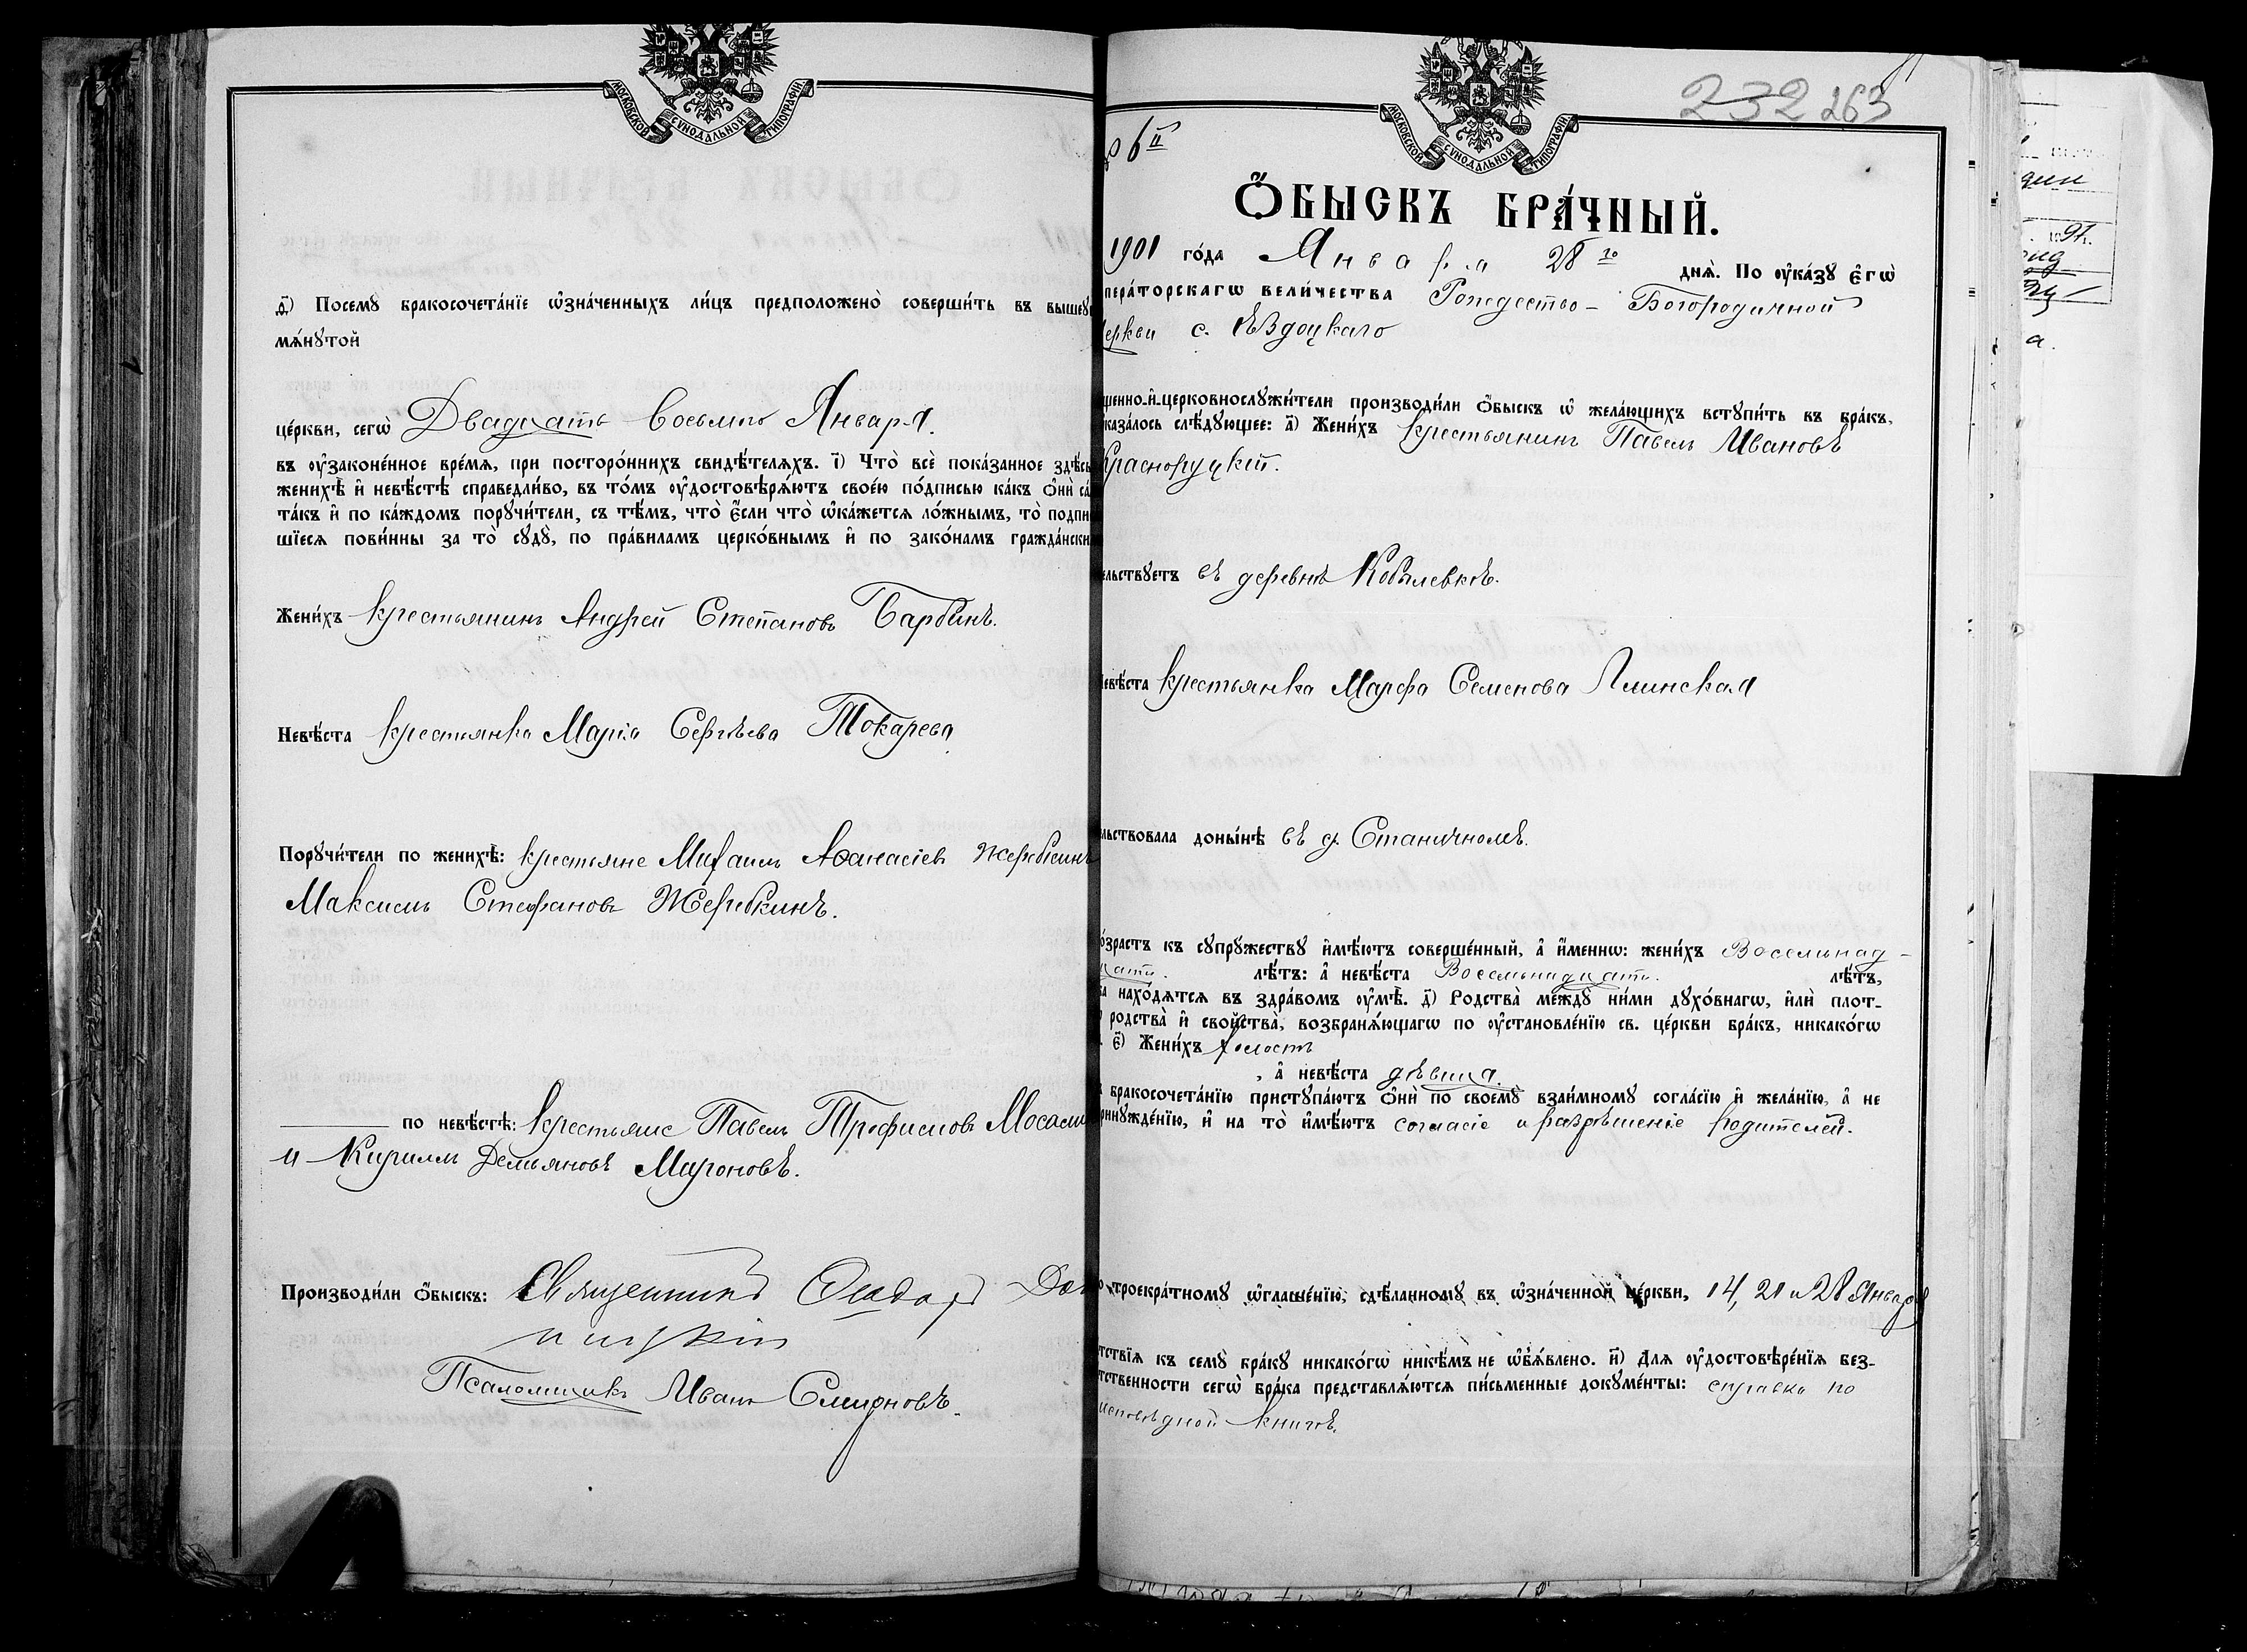 МОСКОВСКОЙ СѴНОДАЛЬНОЙ ТИПОГРАФІИ
ѳ҃) Посемꙋ̀ бракосочета́нїе ѡ҆зна́ченныхъ ли́цъ предположенѡ̀ соверши́ть въ вышеꙋ
мѧ́нꙋтой
це́ркви, сегѡ̀ Двадцать восьмго Января.
въ ᲂу҆законе́нное вре́мѧ, при посторо́ннихъ свидѣ́телѧхъ. і҃) Что̀ всѐ пока́занное здѣ́сь
женихѣ̀ и҆ невѣ́стѣ справедли́во, въ то́мъ ᲂу҆достовѣрѧ́ютъ свое́ю по́дписью ка́къ ѻ҆нѝ са́
та́къ и҆ по ка́ждомъ порꙋчи́тели, съ тѣ́мъ, что̀ є҆́сли что̀ ѡ҆ка́жетсѧ ло́жнымъ, то̀ подпи
шїесѧ пови́нны за то̀ сꙋдꙋ̀, по пра́виламъ церко́внымъ и҆ по зако́намъ гражда́нски
Жени́хъ крестьянинъ Андрей Степановъ Барбинъ.
Невѣ́ста крестьянка Марія Сергѣева Токарева
Порꙋчи́тели по женихѣ̀: крестьяне Михаилъ Аѳанасіевъ Жеребкинъ
Максимъ Стефановъ Жеребкинъ.
по невѣ́стѣ: крестьяне Павелъ Трофимовъ
и Кириллъ Демьяновъ Мароновъ.
Производи́ли ѻ҆́быскъ: Священникъ
Псаломщикъ Иванъ Смирновъ.
МОСКОВСКОЙ СѴНОДАЛЬНОЙ ТИПОГРАФІИ
232 263
6й
Ѻ҆́БЫСКЪ БРА́ЧНЫЙ.
1901 го́да Января 28го днѧ̀. По ᲂу҆ка́зꙋ є҆гѡ̀
пера́торскагѡ вели́чества Рождество-Богородичной
еркви с. Ѣздоцкаго
щенно-и҆-церковнослꙋжи́тели производи́ли ѻ҆́быскъ ѡ҆ жела́ющихъ встꙋпи́ть въ бра́къ,
каза́лось слѣ́дꙋющее: а҃) Жени́хъ крестьянинъ Павелъ Ивановъ
Красноруцкій.
ельствꙋетъ въ деревнѣ Кобылевкѣ.
евѣ́ста крестьянка Марфа Семенова Ллинская
льствовала доны́нѣ въ с. Станичномъ.
о́зрастъ къ сꙋпрꙋ́жествꙋ и҆мѣ́ютъ соверше́нный, а҆ и҆́меннѡ: жени́хъ Восемьнад-
цати. лѣ́тъ: а҆ невѣ́ста Восемьнадцати. лѣ́тъ,
ба нахо́дѧтсѧ въ здра́вомъ ᲂу҆мѣ̀. д҃) Родства̀ междꙋ̀ ни́ми дꙋхо́внагѡ, и҆лѝ плот-
родства̀ и҆ сво́йства, возбранѧ́ющагѡ по ᲂу҆становле́нїю св. це́ркви бра́къ, никако́гѡ
є҃) Жени́хъ холостъ
, а҆ невѣ́ста дѣвица.
бракосочета́нїю пристꙋпа́ютъ ѻ҆нѝ по своемꙋ̀ взаи́мномꙋ согла́сїю и҆ жела́нїю, а҆ не
ринꙋжде́нїю, и҆ на то̀ и҆мѣ́ютъ согласіе и разрѣшеніе родителей.
троекра́тномꙋ ѡ҆глаше́нїю, сдѣ́ланномꙋ въ ѡ҆зна́ченной це́ркви, 14, 21 и 28 Января
тствїѧ къ семꙋ̀ бра́кꙋ никако́гѡ никѣ́мъ не ѡ҆б̾ѧ́влено. и҃) Длѧ ᲂу҆достовѣре́нїѧ без-
тственности сегѡ̀ бра́ка представлѧ́ютсѧ пи́сьменные докꙋме́нты: справка по
исповѣдной книгѣ.